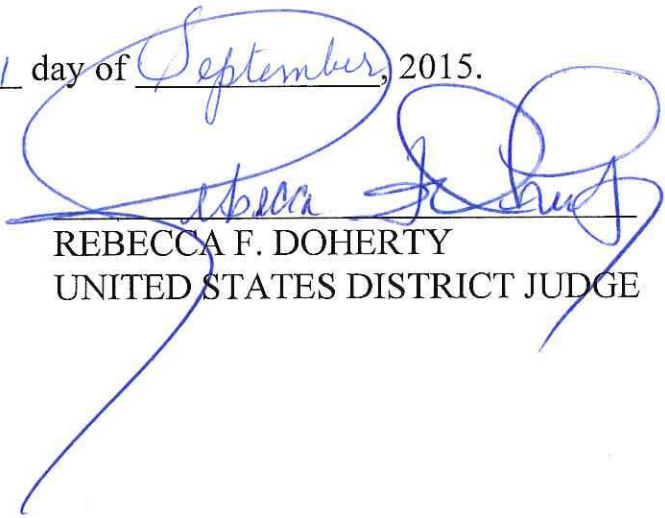 day of September, 2015.
Rebecca F. Doherty
REBECCA F. DOHERTY
UNITED STATES DISTRICT JUDGE